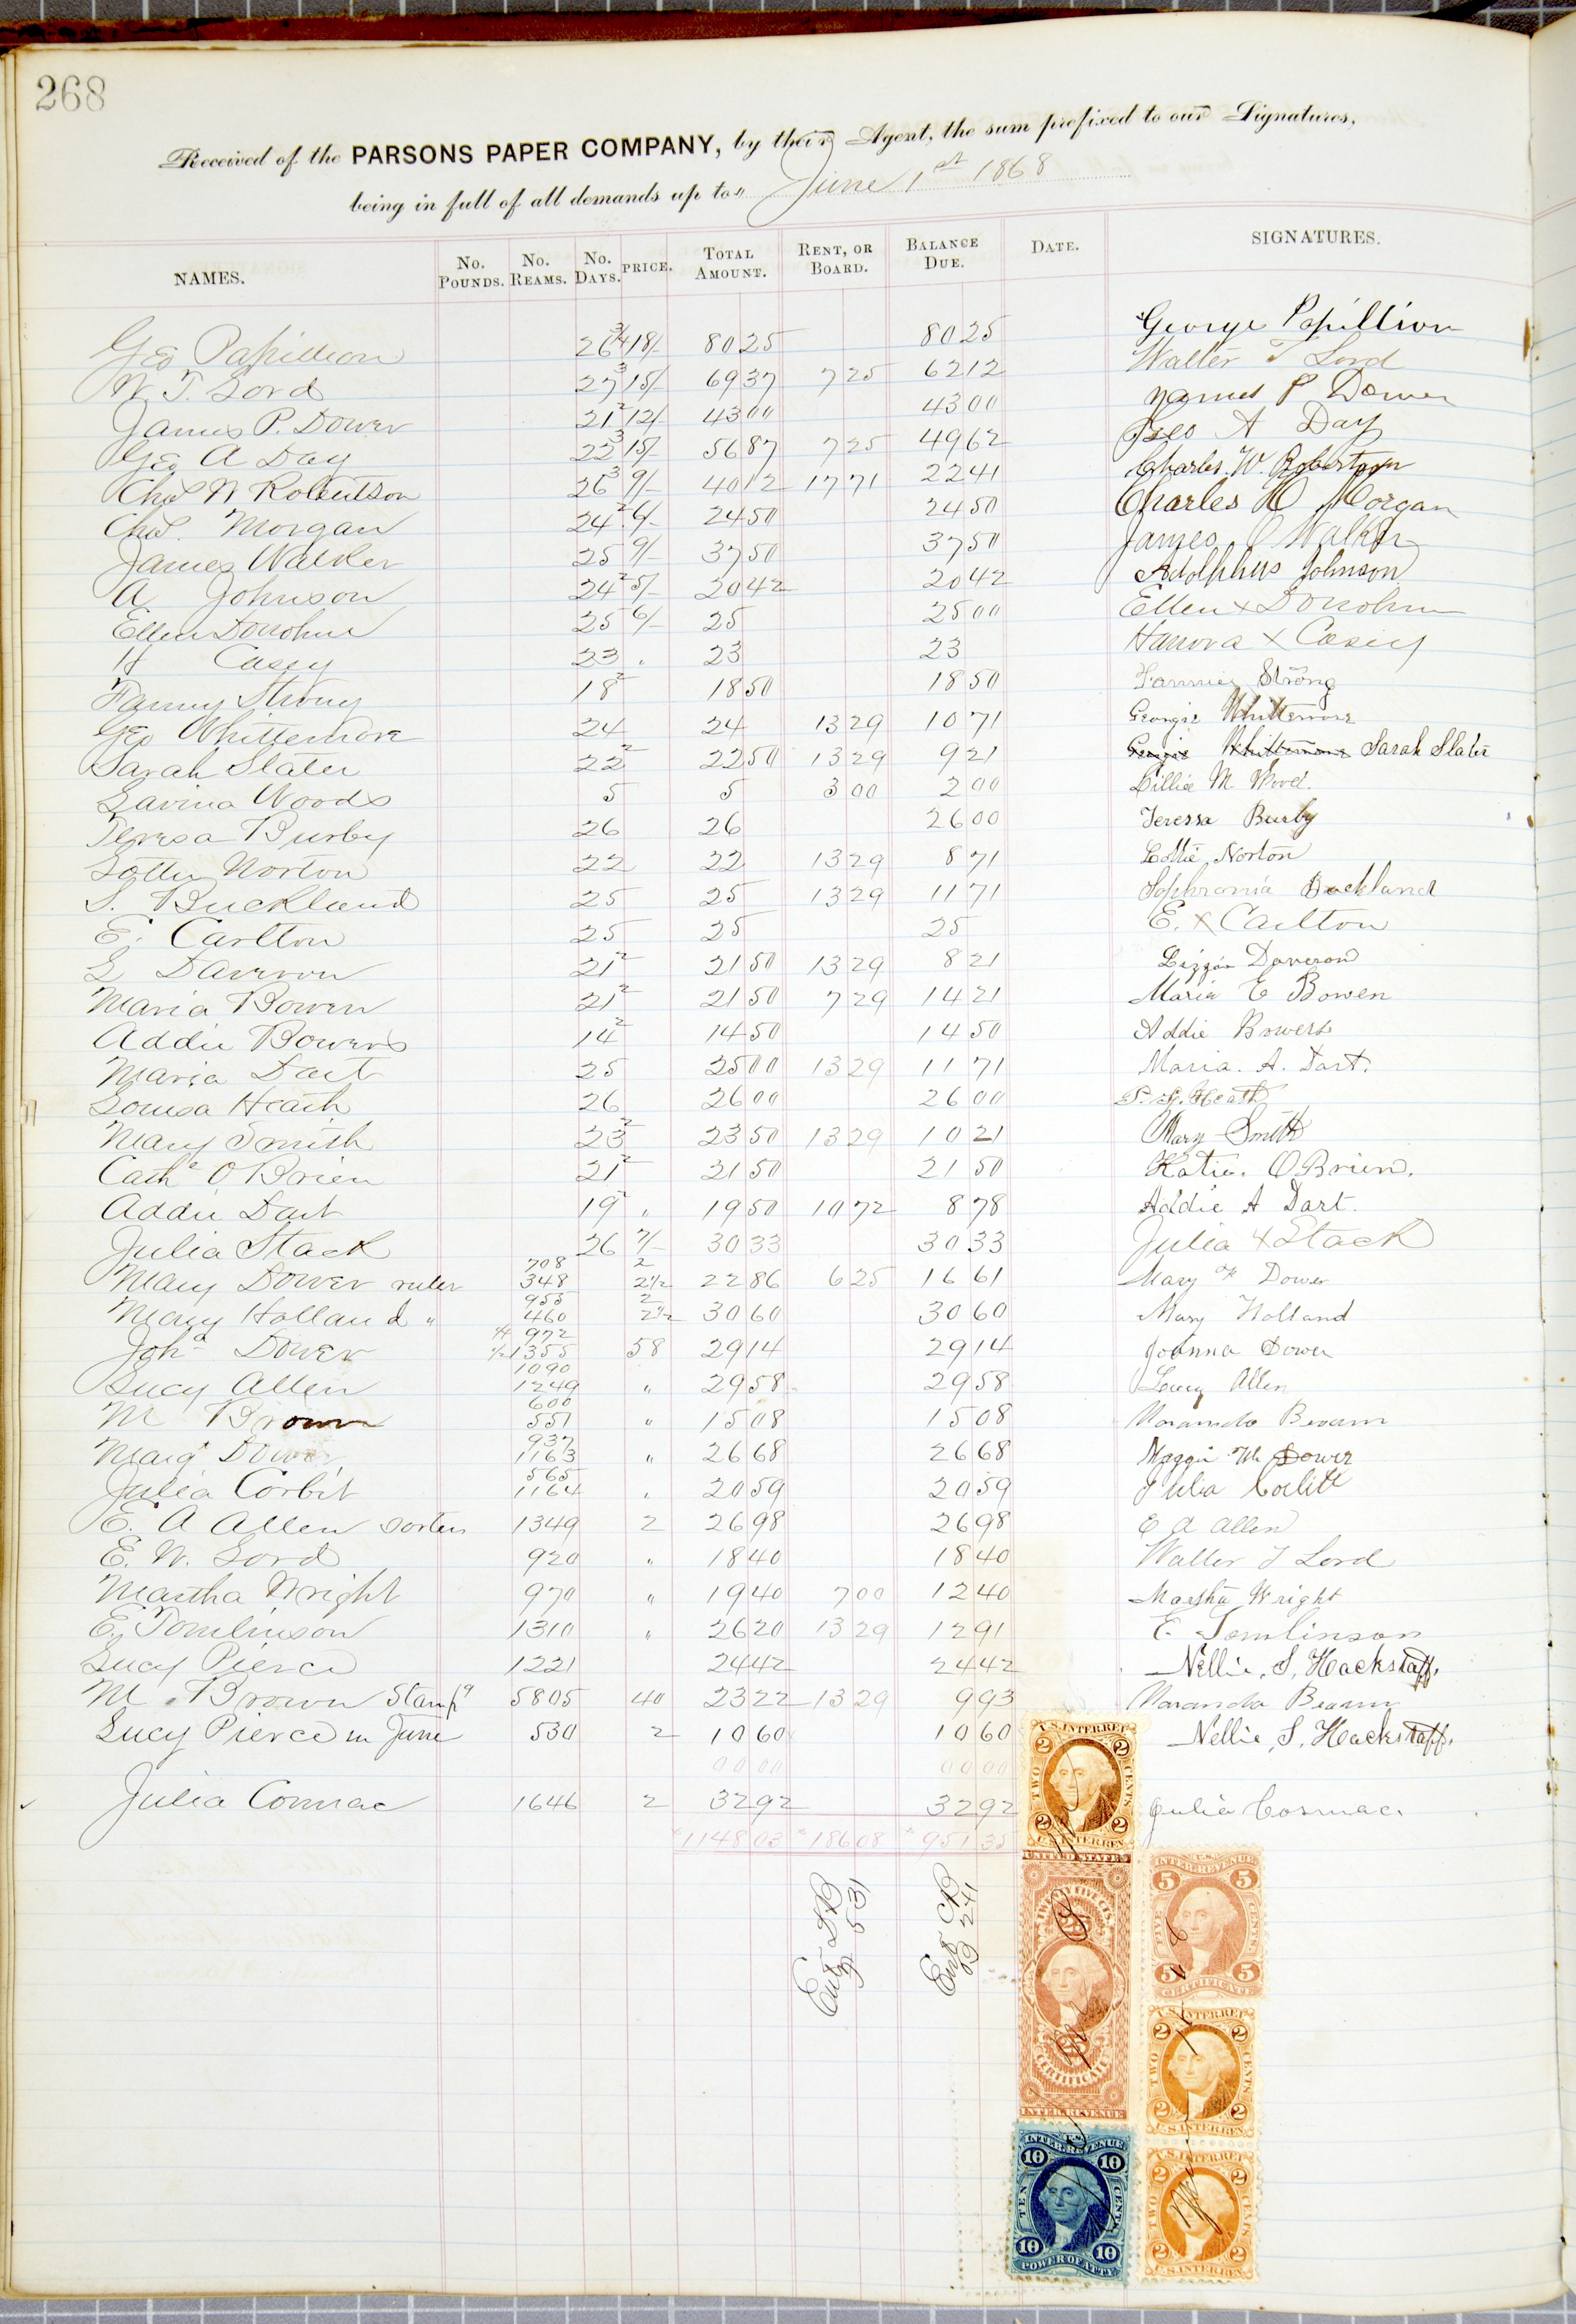 268
Received of the PARSONS PAPER COMPANY, by their Agent, the sum prefixed to our Signatures,
being in full of all demands up to June 1st 1868
NAMES. No. Pounds. No. Reams. No. Days. PRICE. Total Amount. Rent, or Board. Balance Due. Date. SIGNATURES.
Geo Papillion 26 3/4 18/- 80 25 80 25 George Papillion
W. T. Lord 27 3 15/- 69 37 7 25 62 12 Walter T Lord
James P. Dower 21 2 12/- 43 00 43 00 James P Dower
Geo A Day 22 3 15/- 56 87 7 25 49 62 Geo A Day
Chas W Robertson 26 3 9/- 40 12 17 71 22 41 Charles. W. Robertson
Chas. Morgan 24 2 6/- 24 50 24 50 Charles H Morgan
James Walker 25 9/- 37 50 37 50 James Walker
A Johnson 24 2 5/- 20 42 20 42 Adolphus Johnson
Ellen Donohue 25 6/- 25 25 00 Ellen x Donohue
H Casey 23 " 23 23 Hanora x Casey
Fanny Strong 18 2 18 50 18 50 Fannie Strong
Geo Whittemore 24 24 13 29 10 71 Georgie Whittemore
Sarah Slater 22 2 22 50 13 29 9 21 Georgie Whittemore Sarah Slater
Lavina Woods 5 5 3 00 2 00 Lillie M Wood.
Teresa Burby 26 26 26 00 Teressa Burby
Lottie Norton 22 22 13 29 8 71 Lottie Norton
S. Buckland 25 25 13 29 11 71 Sophronia Buckland
E. Carlton 25 25 25 E. x Carlton
L Daveron 21 2 21 50 13 29 8 21 Lizzie Daveron
Maria Bowen 21 2 21 50 7 29 14 21 Maria E Bowen
Addie Bowers 14 2 14 50 14 50 Addie Bowers
Maria Dart 25 25 00 13 29 11 71 Maria. A. Dart.
Louisa Heath 26 26 00 26 00 Heath
Mary Smith 23 2 23 50 13 29 10 21 Mary Smith
Cathe O Brien 21 2 21 50 21 50 Katie. OBrien.
Addie Dart 19 2 " 19 50 10 72 8 78 Addie A Dart.
Julia Stack 26 7/- 30 33 30 33 Julia x Stack
708 2
Mary Dower ruler 348 2 1/2 22 86 6 25 16 61 Mary Dower
955 2
Mary Holland " 460 2 1/2 30 60 30 60 Mary Holland
972
Joha Dower 1355 58 29 14 29 14 Joanna Dower
1090
Lucy Allen 1249 " 29 58 29 58 Lucy Allen
600
M Brown 551 " 15 08 15 08
937
Margt Dower 1163 " 26 68 26 68 Maggie M Dower
565
Julia Corbit 1164 " 20 59 20 59 Julia Corbitt
E. A Allen sorters 1349 2 26 98 26 98 E A Allen
E. W. Lord 920 " 18 40 18 40 Walter T Lord
Martha Wright 970 " 19 40 7 00 12 40 Martha Wright
E. Tomlinson 1310 " 26 20 13 29 12 91 E. Tomlinson
Lucy Pierce 1221 24 42 24 42 Nellie, S, Hackstaff,
M. Brown Stampg 5805 40 23 22 13 29 9 93
Lucy Pierce in June 530 2 10 60 10 60 Nellie, S, Hackstaff,
00 00 00 00
Julia Cormac 1646 2 32 92 32 92 Julia Cormac.
$1148 03 $186 08 $951 35
Entd
531
Entd CB
241
U.S. INTER. REV. TWO CENTS 2 2 2 2 U.S. INTER. REV.
UNITED STATES TWENTY FIVE CTS. 25 CERTIFICATE INTER. REVENUE
U.S. INTER. REVENUE TEN CENTS 10 10 10 10 POWER OF ATTY
U.S. INTER. REVENUE FIVE CENTS 5 5 5 5 CERTIFICATE
U.S. INTER. REV. TWO CENTS 2 2 2 2 U.S. INTER. REV.
U.S. INTER. REV. TWO CENTS 2 2 2 2 U.S. INTER. REV.